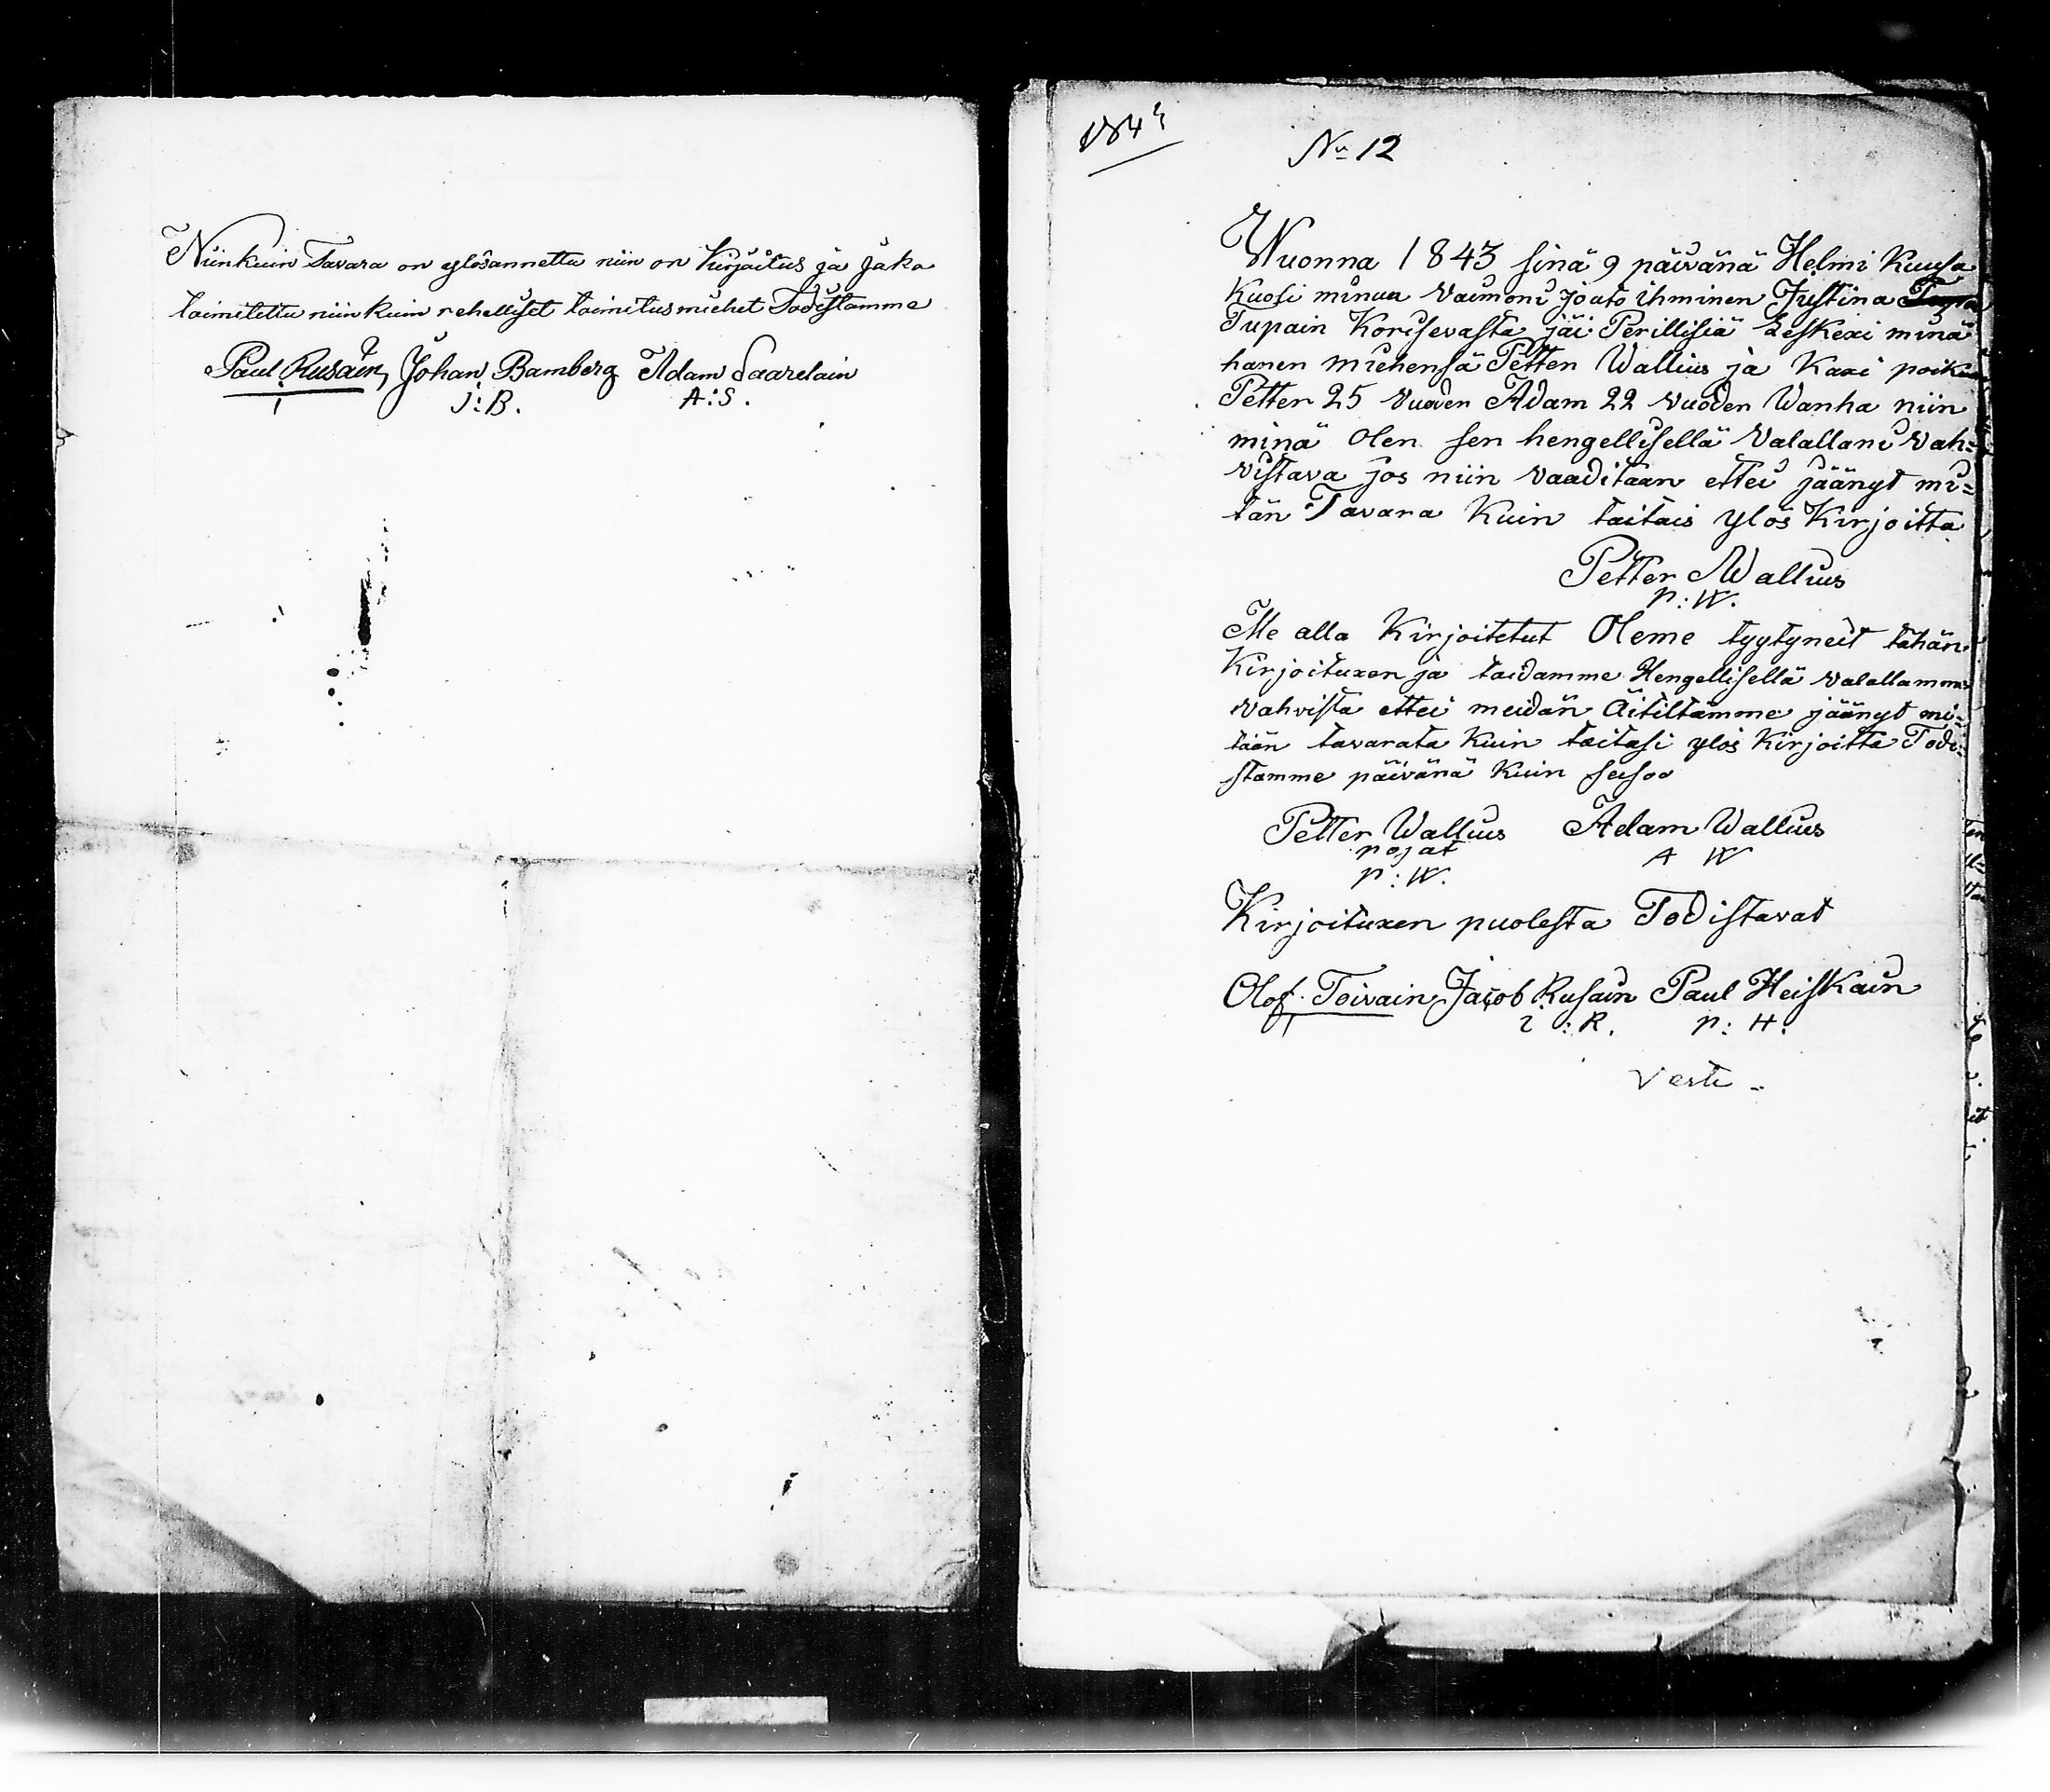 Niinkuin Tavara on ylösannettu niin on Kirjaitus ja Jako
toimitettu niinkuin rehelliset toimitusmiehet Todistamme
Paul Rusain, Johan Bamberg Adam Saarelain
J:B. A:S.
184
No 12
Wuonna 1843 sinä 9 päivänä Helmi Kuusa
Kuosi minun Vaimoni Joato ihminen Justina
Tupain Korisevasta jäi Perillisiä Leskexi minä
hanen miehensä Petter Wallius ja Kaxi poikaa
Petter 25 Vuoden Adam 22 Vuoden Wanha niin
minä Olen sen hengellisellä Valallani Vah=
vistava jos niin vaaditaan ettei jäänyt mi=
tän Tavara Kuin taitais ylös Kirjoitta
Petter Wallius
P:W.
Me alla Kirjoitetut Oleme tyytyneet tähän
Kirjoituxen ja taidamme Hengellisellä valallamme
vahvista ettei meidän Äitiltämme jäänyt mi=
tään tavarata Kuin taitasi ylös Kirjoitta Todi=
stamme päivänä Kuin seisoo
Petter Wallius Adam Wallius
pojat A W
P:W.
Kirjoituxen puolesta Todistavat
Olof Toivain Jacob Rusain Paul Heiskain
I:R. P:H.
Verte